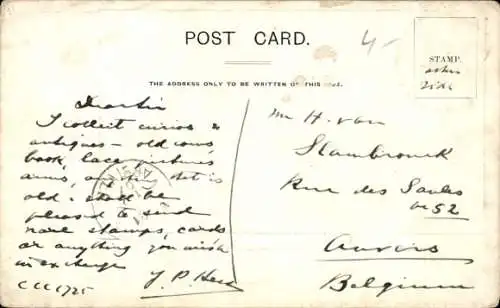 POST CARD.
4-
STAMP.
other
side
THE ADDRESS ONLY TO BE WRITTEN ON THIS
Dear Sir
I collect curios &
antiques - old coins,
book, lace pictures
arms, anything that is
old. shall be
pleased to send
rare stamps, cards
or anything you wish
in exchange
J. P. 
CCC 1725
Mr H. van
Stambrouck
Rue des Saules
52
Anvers
Belgium